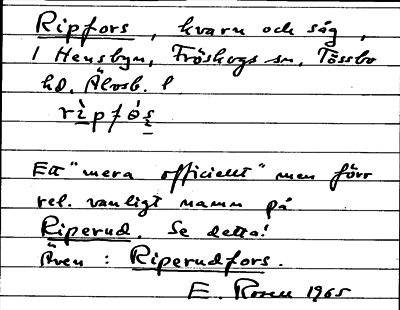 Ripfors, kvarn och såg,
i Hensbyn, Fröskogs sn, Tössbo
hd, Älvsb. l
rìpfós
Ett "mera officiellt" men förr
rel. vanligt namn på
Riperud. Se detta!
Även: Riperudfors.
E. Rosen 1965